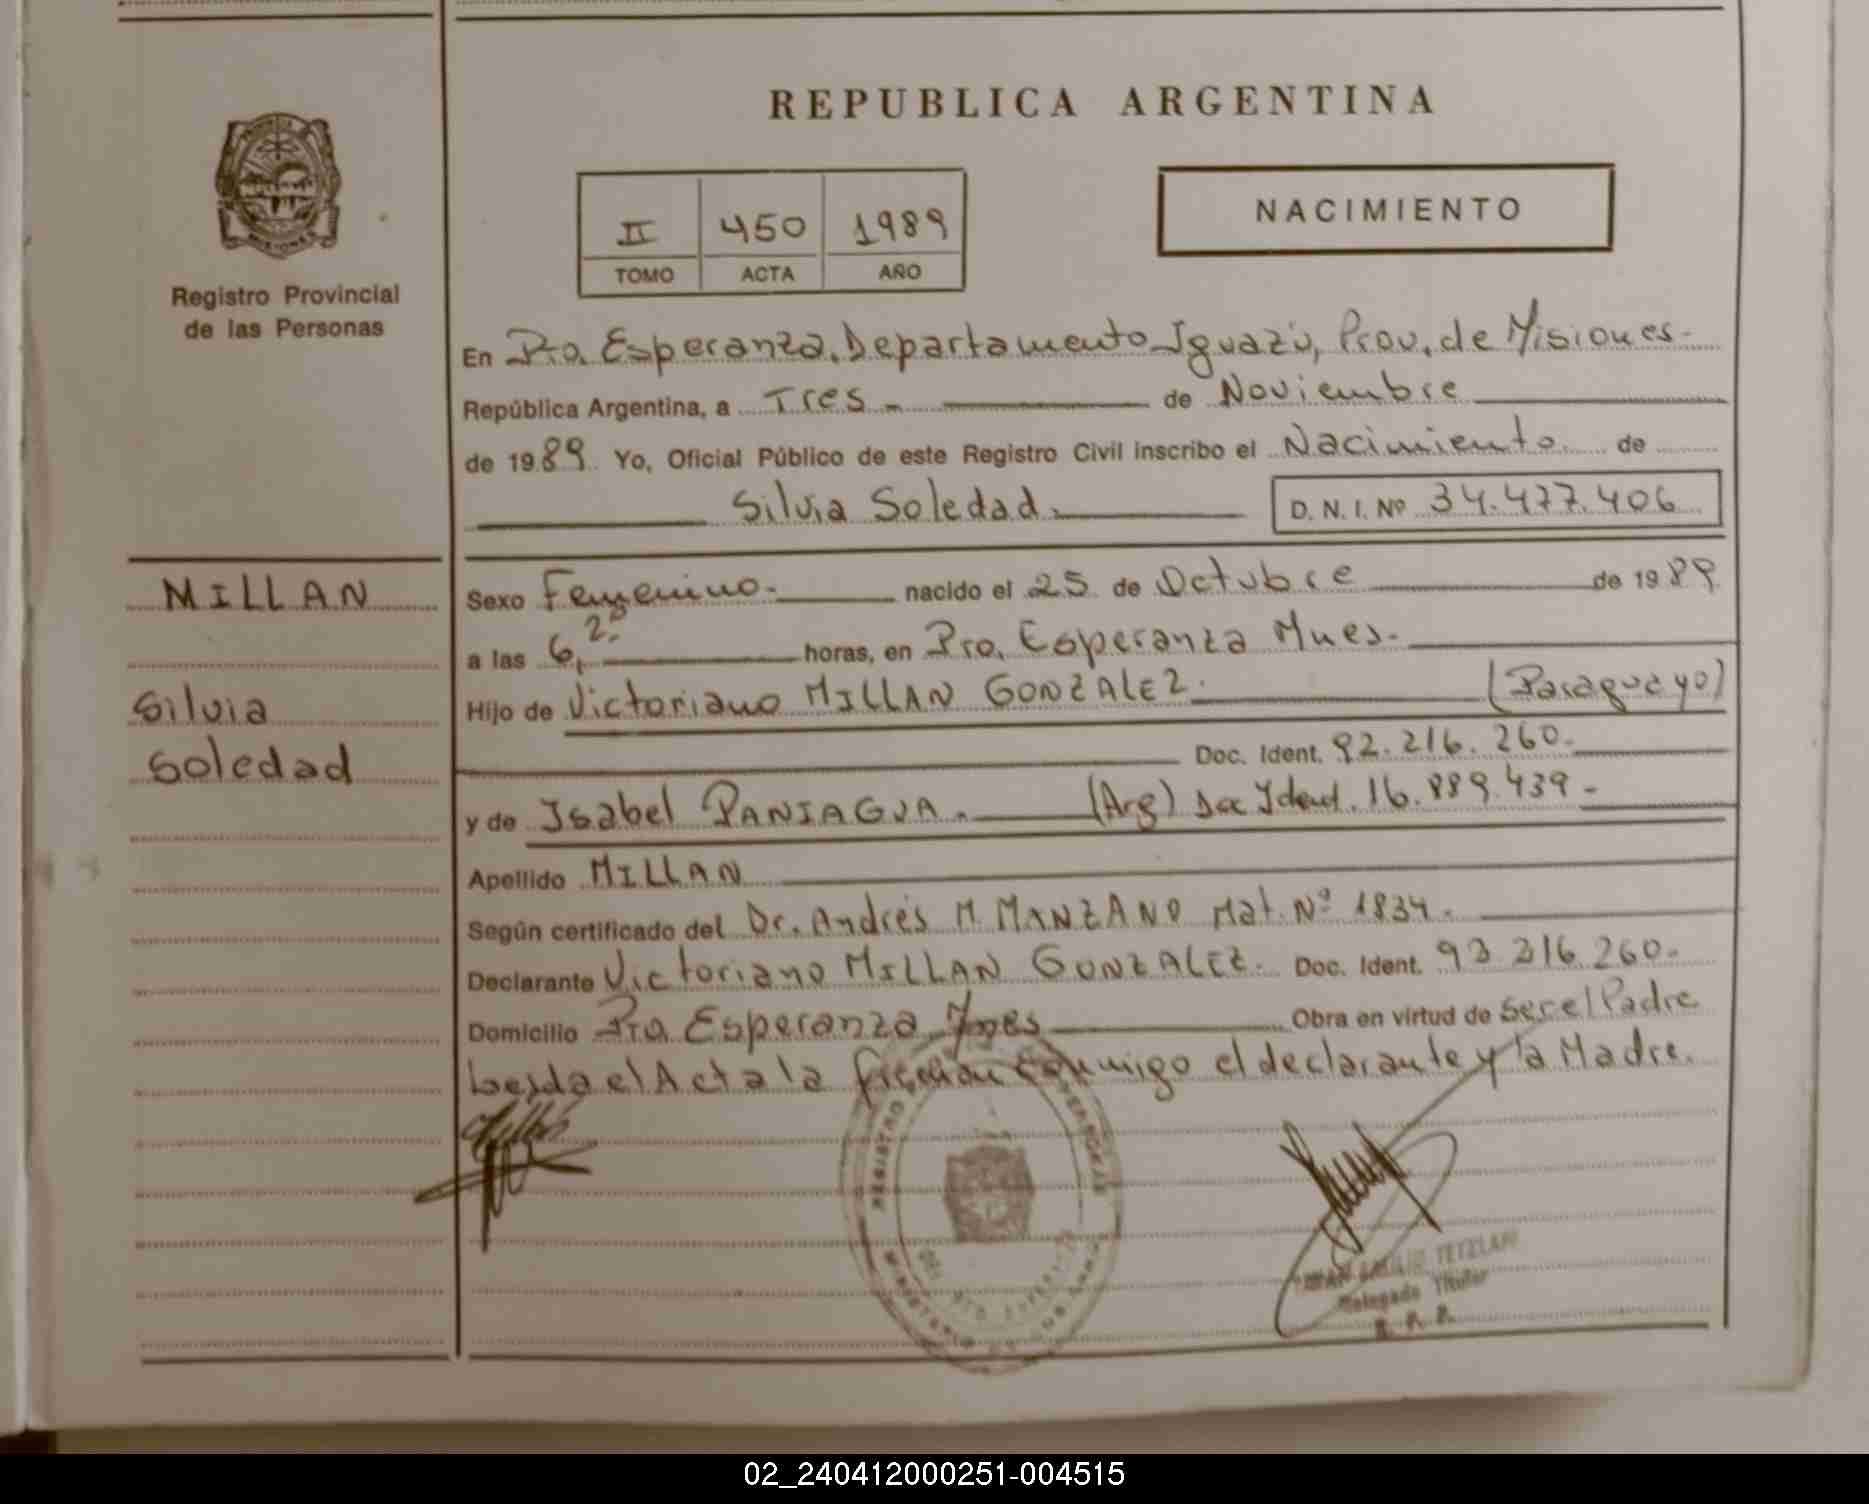 REPUBLICA ARGENTINA
NACIMIENTO
II 450 1989
TOMO ACTA AÑO
Registro Provincial
de las Personas
En Pto. Esperanza, Departamento Iguazú, Prov. de Misiones-
República Argentina, a Tres - de Noviembre
de 1989 Yo, Oficial Público de este Registro Civil inscribo el Nacimiento de
Silvia Soledad. D. N. I. Nº 34.477.406
MILLAN
Silvia
Soledad
Sexo Femenino.- nacido el 25 de Octubre de 1989
a las 6,20 horas, en Pto. Esperanza Mnes.-
Hijo de Victoriano MILLAN GONZALEZ. (Paraguayo)
Doc. Ident. 92.216.260.-
y de Isabel PANIAGUA. (Arg) Doc Ident. 16.889.439 -
Apellido MILLAN
Según certificado del Dr. Andrés M. MANZANO Mat. Nº 1834.
Declarante Victoriano MILLAN GONZALEZ. Doc. Ident. 93.216.260.-
Domicilio Pto. Esperanza Mnes Obra en virtud de ser el Padre
Leida el Acta la firman conmigo el declarante y la Madre.
REGISTRO PERSONAS
MINISTERIO DE GOBIERNO
TETZLAFF
Delegado Titular
R. P. P.
02_240412000251-004515